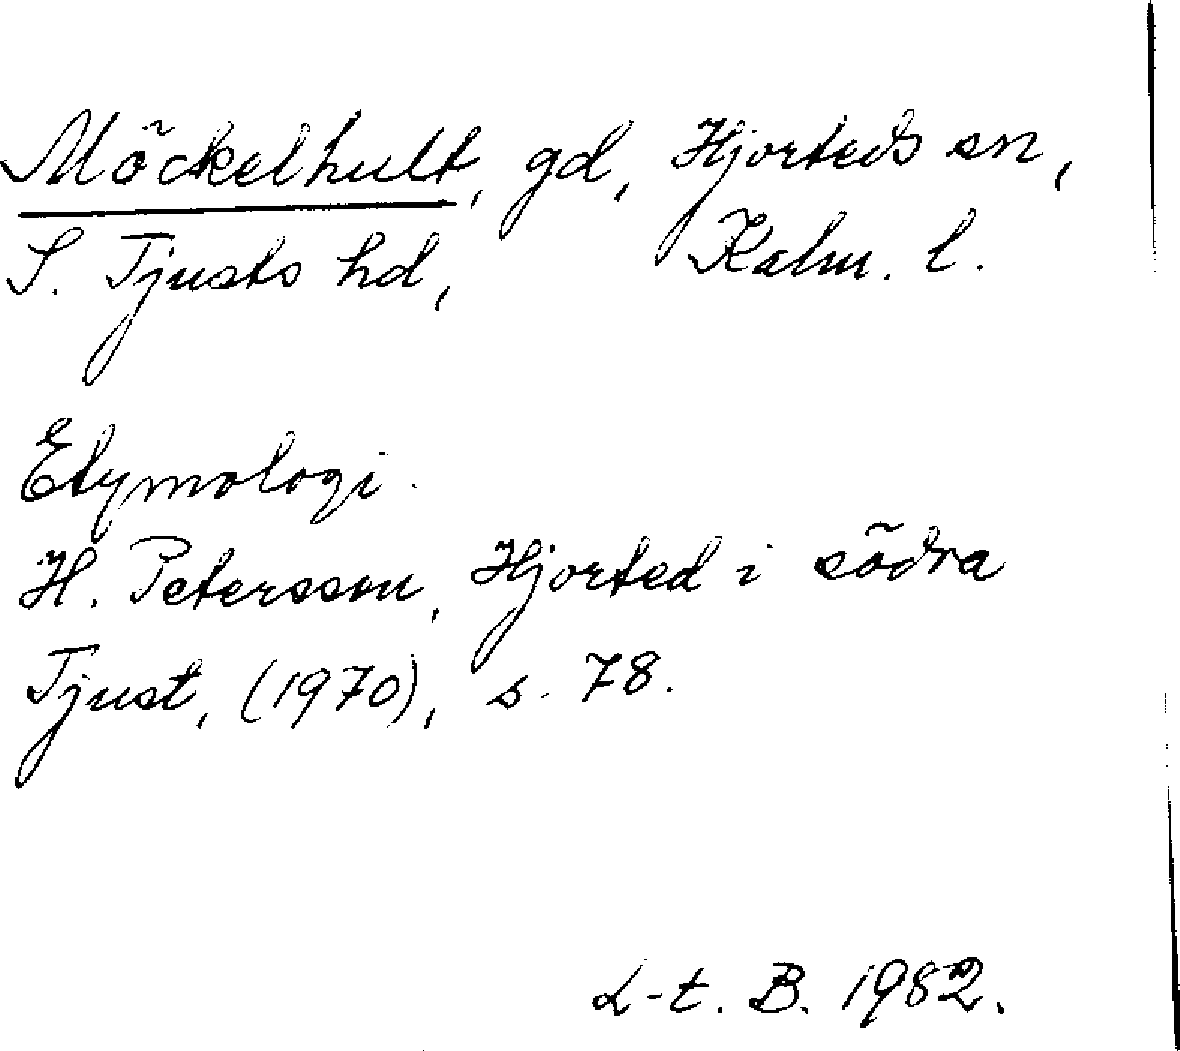 Möckelhult, gd, Hjorteds sn,
S. Tjusts hd, Kalm. l.
Etymologi.
H. Petersson, Hjorted i södra
Tjust, (1970), s. 78.
L-t. B. 1982.